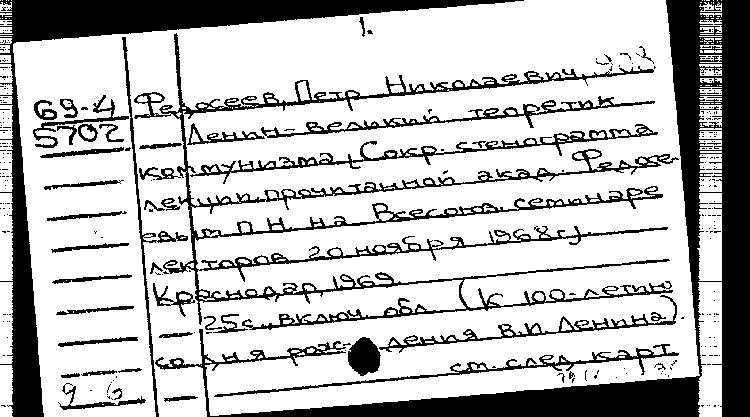 1.
69-4
5702
Федосеев, Петр Николаевич, 908
Ленин- великий теоретик
коммунизма. [Сокр. стенограмма
лекции, прочитанной акад. Федосе-
евым П.Н. на Всесоюз. семинаре
лекторов 20 ноября 1968 г.].
Краснодар, 1969.
25с., включ. обл. (К 100-летию
со дня рож- дения В.И. Ленина).
см. след. карт
9-6